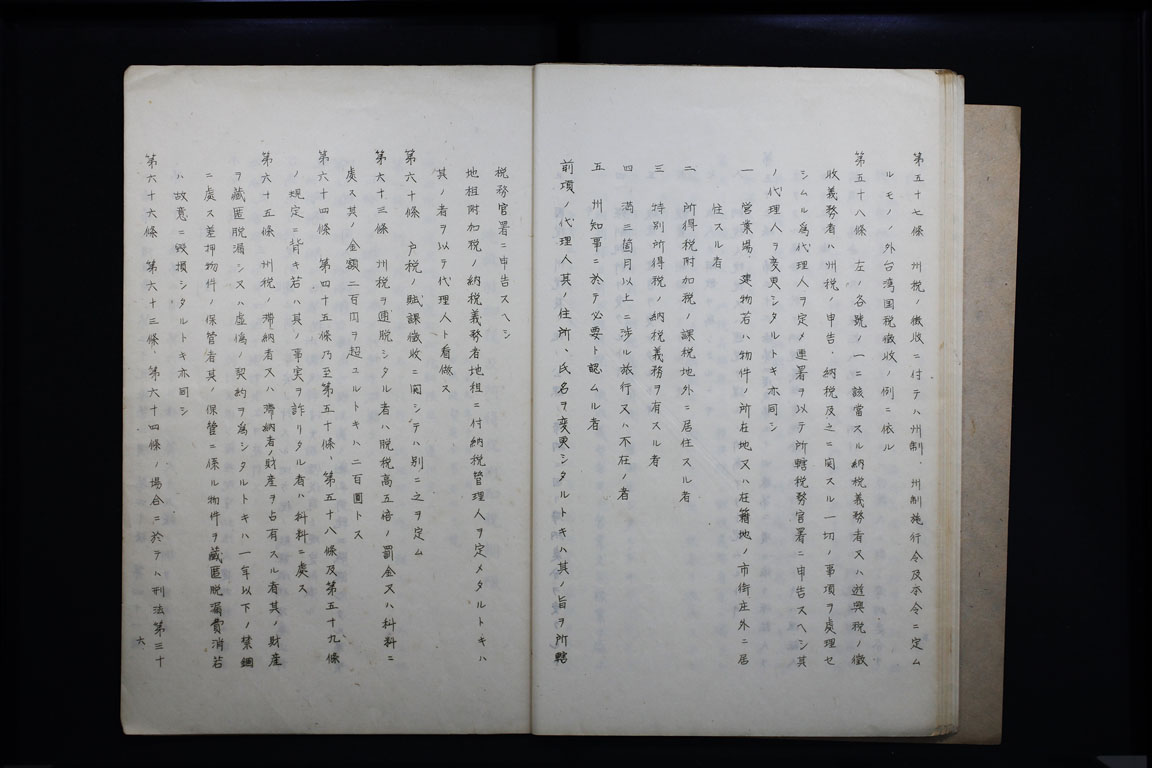 第五十七條　州税ノ徴收ニ付テハ州制、州制施行令及本令ニ定ム
ルモノノ外台湾国税徴收ノ例ニ依ル
第五十八條　左ノ各號ノ一ニ該當スル納税義務者又ハ遊興税ノ徴
收義務者ハ州税ノ申告、納税及之ニ関スル一切ノ事項ヲ處理セ
シムル為代理人ヲ定メ連署ヲ以テ所轄税務官署ニ申告スヘシ其
ノ代理人ヲ変更シタルトキ亦同シ
一　営業場、建物若ハ物件ノ所在地又ハ在籍地ノ市街庄外ニ居
住スル者
二　所得税附加税ノ課税地外ニ居住スル者
三　特別所得税ノ納税義務ヲ有スル者
四　満三箇月以上ニ渉ル旅行又ハ不在ノ者
五　州知事ニ於テ必要ト認ムル者
前項ノ代理人其ノ住所、氏名ヲ変更シタルトキハ其ノ旨ヲ所轄
税務官署ニ申告スヘシ
地租附加税ノ納税義務者地租ニ付納税管理人ヲ定メタルトキハ
其ノ者ヲ以テ代理人ト看做ス
第六十條　戸税ノ賦課徴收ニ関シテハ別ニ之ヲ定ム
第六十三條　州税ヲ逋脱シタル者ハ脱税高五倍ノ罰金又ハ科料ニ
處ス其ノ金額二百円ヲ超ユルトキハ二百圓トス
第六十四條　第四十五條乃至第五十條、第五十八條及第五十九條
ノ規定ニ背キ若ハ其ノ事実ヲ詐リタル者ハ科料ニ處ス
第六十五條　州税ノ滞納者又ハ滞納者ノ財産ヲ占有スル者其ノ財産
ヲ藏匿脱漏シ又ハ虚偽ノ契約ヲ為シタルトキハ一年以下ノ禁錮
ニ處ス差押物件ノ保管者其ノ保管ニ係ル物件ヲ藏匿脱漏費消若
ハ故意ニ毀損シタルトキ亦同シ
第六十六條　第六十三條、第六十四條ノ場合ニ於テハ刑法第三十
六